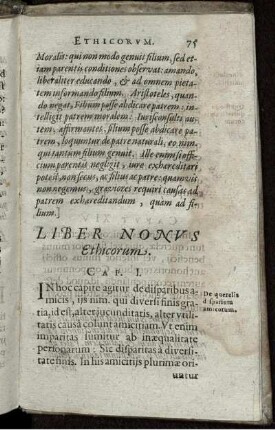 ETHICORVM. 75
Moralis: qui non modo genuit filium, sed et-
iam parentis conditiones observat: amando,
liberaliter educando, & ad omnem pieta-
tem informando filium. Aristoteles, quan-
do negat, Filium posse abdicare patrem: in-
telligit patrem moralem: Iurisconsulti au-
tem, affirmantes, filium posse abdicare pa-
trem, loquuntur de patre naturali, eo, nim.
qui tantum filium genuit. Ille enim si offi-
cium parentis neglexit, iure exhaereditari
potest, non secus, ac filius ac patre: quamvis
non negemus, graviores requiri causas ad
patrem exhaereditandum, quam ad fi-
lium.]
LIBER NONVS
Ethicorum.
CAP. I.
IN hoc capite agitur de disparibus a-
micis, iis nim. qui diversi finis gra-
tia, id est, alter jucunditatis, alter utili-
tatis causa colunt amicitiam. Vt enim
imparitas sumitur ab inaequalitate
personarum: Sic disparitas a diversi-
tate finis. In his amicitiis plurimae ori-
untur
De querelis
disparium
amicorum.